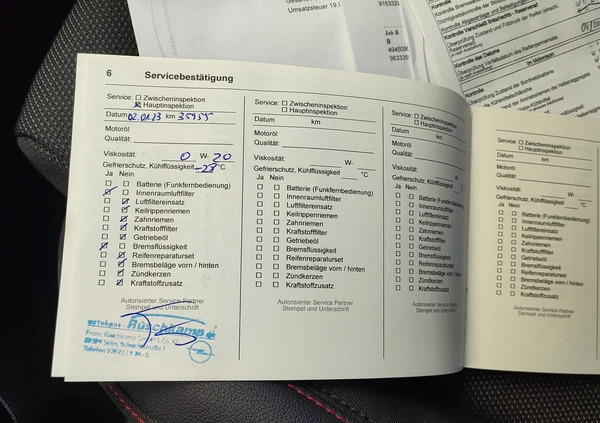 Umsatzsteuer 19,0
Job B
B
Kontrolle Verschleiß links/rechts - Reserverad
Kontrolle des Datums
Im Motorraum
Kontrolle
6 Servicebestätigung
Service: ☐ Zwischeninspektion
☒ Hauptinspektion
Datum 02.01.23 km 35955
Motoröl
Qualität:
Viskosität: 0 W- 20
Gefrierschutz, Kühlflüssigkeit -28 °C
Ja Nein
Batterie (Funkfernbedienung)
Innenraumluftfilter
Luftfiltereinsatz
Keilrippenriemen
Zahnriemen
Kraftstofffilter
Getriebeöl
Bremsflüssigkeit
Reifenreparaturset
Bremsbeläge vorn / hinten
Zündkerzen
Kraftstoffzusatz
Autorisierter Service Partner
Stempel und Unterschrift
autohaus - Rüschkamp
Franz Rüschkamp GmbH & Co. KG
Selm,
Telefon
Service: ☐ Zwischeninspektion
☐ Hauptinspektion
Datum km
Motoröl
Qualität:
Viskosität: W-
Gefrierschutz, Kühlflüssigkeit °C
Ja Nein
Batterie (Funkfernbedienung)
Innenraumluftfilter
Luftfiltereinsatz
Keilrippenriemen
Zahnriemen
Kraftstofffilter
Getriebeöl
Bremsflüssigkeit
Reifenreparaturset
Bremsbeläge vorn / hinten
Zündkerzen
Kraftstoffzusatz
Autorisierter Service Partner
Stempel und Unterschrift
Service: ☐ Zwischeninspektion
☐ Hauptinspektion
Datum km
Motoröl
Qualität:
Viskosität: W-
Gefrierschutz, Kühlflüssigkeit °C
Ja Nein
Batterie (Funkfernbedienung)
Innenraumluftfilter
Luftfiltereinsatz
Keilrippenriemen
Zahnriemen
Kraftstofffilter
Getriebeöl
Bremsflüssigkeit
Reifenreparaturset
Bremsbeläge vorn / hinten
Zündkerzen
Kraftstoffzusatz
Autorisierter Service Partner
Stempel und Unterschrift
Service: ☐ Zwischeninspektion
☐ Hauptinspektion
Datum km
Motoröl
Qualität:
Viskosität: W-
Gefrierschutz, Kühlflüssigkeit °C
Ja Nein
Batterie (Funkfernbedienung)
Innenraumluftfilter
Luftfiltereinsatz
Keilrippenriemen
Zahnriemen
Kraftstofffilter
Getriebeöl
Bremsflüssigkeit
Reifenreparaturset
Bremsbeläge vorn / hinten
Zündkerzen
Kraftstoffzusatz
Autorisierter Service Partner
Stempel und Unterschrift